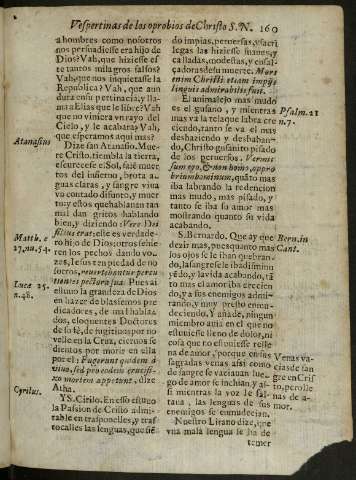 Vespertinas de los oprobios de Christo S. N. 160
a hombres como nosotros
nos persuadiesse era hijo de
Dios? Vah, que hiziesse es-
te tantos milagros falsos?
Vah, que nos inquietasse la
Republica? Vah, que aun
dura en su pertinacia, y lla-
ma a Elias que le libre? Vah
que no viniera vn rayo del
Cielo, y le acabara? Vah,
que esperamos aqui mas?
Atanasius
Dize san Atanasio. Mue-
re Christo, tiembla la tierra,
escurecese el Sol, salē muer
tos del infierno, brota a-
guas claras, y sangre viua
vn costado difunto, y muer
tuy estos que habla an tan
mal dan gritos hablando
bien, y diziendo: Vere Dei
filius erat: elle es verdade-
Matth. e
27, nu. 54.
ro hijo de Dios; otros se hie-
ren los pechos dando vo-
zes, Iesus ten piedad de no
sotros, reuertebantur percu
Lucæ 23.
n. 48.
tientes pectora sua. Pues ai
estuuo la grandeza de Dios
en hazer de blasfemos pre-
dicadores, de mal habla-
dos, eloquentes Doctores
de so fè, de fugitiuos por no
velle en la Cruz, ciernos se
dientos por morir en ella
por el: Fugerunt quidem à
vino, sed pro eodem crucifi-
xo mortem appetunt, dize
Atha.
Cyrilus.
YS. Cirilo. En esso estuuo
la Passion de Christo admi-
table en trasponelles, y tras
tocalles las lenguas, que siē
do impias, peruersas, y sacri
legas las hiziesse suaues, y
calladas, modestas, y ensal-
çadoras de su muerte. Mors
enim Christi etiam impijs
linguis admirabilis fuit.
El animalejo mas mudo
es el gusano, y mientras
mas va la tela que labra cre
ciendo, tanto se va el mas
deshaziendo y desbahan-
do, Christo gusanito pisado
de los peruersos. Vermis
sum ego, & non homo, oppro
brium hominum, quāto mas
iba labrando la redencion
mas mudo, mas pisado, y
tanto se iba so amor mas
mostrando quanto su vida
acabando.
Psalm. 21
n. 7.
S. Bernardo. Que ay que
Bern. in
Cant.
dezir mas, pues quanto mas
los ojos se le iban quebran-
do, la sangre se le iba disminu
yēdo, y la vida acabando, tā
to mas el amor iba crecien-
do, y a sus enemigos admi-
rando, y muy presto encen-
diendo. Y añade, ningun
miembro auia en el que no
estuuiesse lleno de dolor, ni
cosa que no estuuiesse relle
na de amor, porque en sus
sagradas venas assi como
de sangre se vaciauan lue-
go de amor se inchian, y as-
si mientras la voz le fal-
taua, las lenguas de sus
enemigos se enmudecian.
Venas va-
cias de san
gre en Cris
to, pero lle
nas de a-
mor.
Nuestro Lirano dize, que
vna mala lengua se ha de
temer